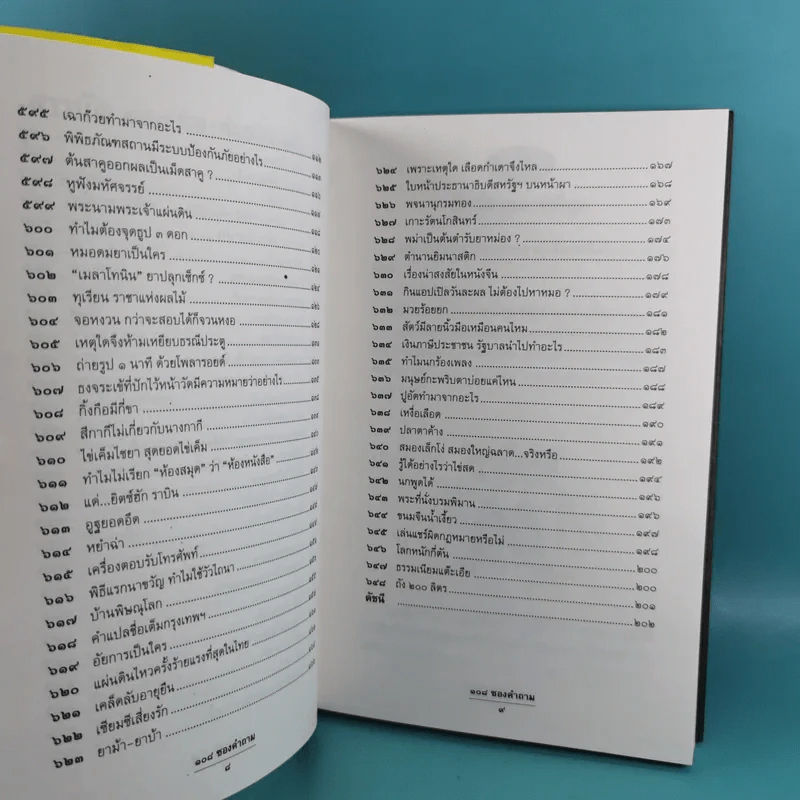 ๕๙๕ เฉาก๊วยทำมาจากอะไร
๕๙๖ พิพิธภัณฑสถานมีระบบป้องกันภัยอย่างไร
๕๙๗ ต้นสาคูออกผลเป็นเม็ดสาคู ?
๕๙๘ หูฟังมหัศจรรย์
๕๙๙ พระนามพระเจ้าแผ่นดิน
๖๐๐ ทำไมต้องจุดธูป ๓ ดอก
๖๐๑ หมอดมยาเป็นใคร
๖๐๒ "เมลาโทนิน" ยาปลุกเซ็กซ์ ?
๖๐๓ ทุเรียน ราชาแห่งผลไม้
๖๐๔ จอหงวน กว่าจะสอบได้ก็จวนหงอ
๖๐๕ เหตุใดจึงห้ามเหยียบธรณีประตู
๖๐๖ ถ่ายรูป ๑ นาที ด้วยโพลารอยด์
๖๐๗ ธงจระเข้ที่ปักไว้หน้าวัดมีความหมายว่าอย่างไร
๖๐๘ กิ้งกือมีกี่ขา
๖๐๙ สีกากีไม่เกี่ยวกับนางกากี
๖๑๐ ไข่เค็มไชยา สุดยอดไข่เค็ม
๖๑๑ ทำไมไม่เรียก "ห้องสมุด" ว่า "ห้องหนังสือ"
๖๑๒ แด่...ยิตซ์ฮัก ราบิน
๖๑๓ อูฐยอดอึด
๖๑๔ หยำฉ่า
๖๑๕ เครื่องตอบรับโทรศัพท์
๖๑๖ พิธีแรกนาขวัญ ทำไมใช้วัวไถนา
๖๑๗ บ้านพิษณุโลก
๖๑๘ คำแปลชื่อเต็มกรุงเทพฯ
๖๑๙ อัยการเป็นใคร
๖๒๐ แผ่นดินไหวครั้งร้ายแรงที่สุดในไทย
๖๒๑ เคล็ดลับอายุยืน
๖๒๒ เซียมซีเสี่ยงรัก
๖๒๓ ยาม้า-ยาบ้า
๑๐๘ ซองคำถาม
๘
๖๒๔ เพราะเหตุใด เลือดกำเดาจึงไหล ๑๖๗
๖๒๕ ใบหน้าประธานาธิบดีสหรัฐฯ บนหน้าผา ๑๖๘
๖๒๖ พจนานุกรมทอง ๑๖๙
๖๒๗ เกาะรัตนโกสินทร์ ๑๗๓
๖๒๘ พม่าเป็นต้นตำรับยาหม่อง ? ๑๗๔
๖๒๙ ตำนานยิมนาสติก ๑๗๖
๖๓๐ เรื่องน่าสงสัยในหนังจีน ๑๗๘
๖๓๑ กินแอปเปิลวันละผล ไม่ต้องไปหาหมอ ? ๑๗๙
๖๓๒ มวยร้อยยก ๑๘๑
๖๓๓ สัตว์มีลายนิ้วมือเหมือนคนไหม ๑๘๒
๖๓๔ เงินภาษีประชาชน รัฐบาลนำไปทำอะไร ๑๘๓
๖๓๕ ทำไมนกร้องเพลง ๑๘๗
๖๓๖ มนุษย์กะพริบตาบ่อยแค่ไหน ๑๘๘
๖๓๗ ปูอัดทำมาจากอะไร ๑๘๙
๖๓๘ เหงื่อเลือด ๑๙๐
๖๓๙ ปลาตาค้าง ๑๙๑
๖๔๐ สมองเล็กโง่ สมองใหญ่ฉลาด...จริงหรือ ๑๙๒
๖๔๑ รู้ได้อย่างไรว่าไข่สด ๑๙๔
๖๔๒ นกพูดได้ ๑๙๕
๖๔๓ พระที่นั่งบรมพิมาน ๑๙๖
๖๔๔ ขนมจีนน้ำเงี้ยว ๑๙๗
๖๔๕ เล่นแชร์ผิดกฎหมายหรือไม่ ๑๙๘
๖๔๖ โลกหนักกี่ตัน ๒๐๐
๖๔๗ ธรรมเนียมแต๊ะเอีย ๒๐๐
๖๔๘ ถัง ๒๐๐ ลิตร ๒๐๑
ดัชนี ๒๐๒
๑๐๘ ซองคำถาม
๙